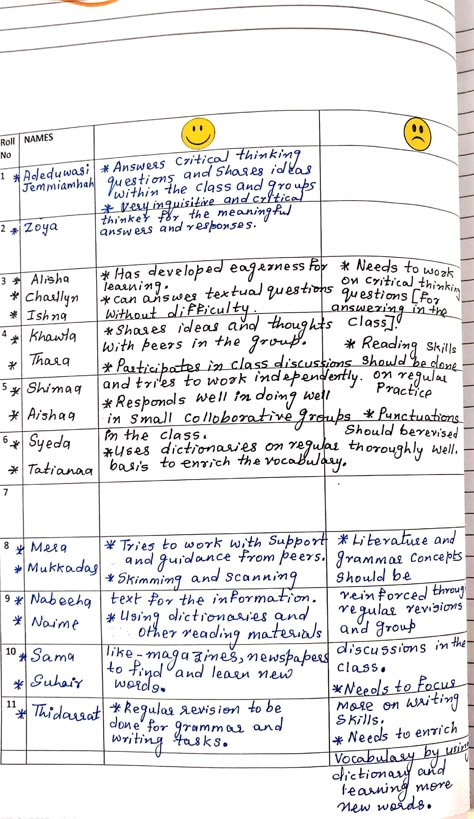 Roll No NAMES
1 * Adeduwasi * Answers critical thinking
Jemmiamhah questions and shares ideas
within the class and groups
* Very inquisitive and critical
2 * Zoya thinker for the meaningful
answers and responses.
3 * Alisha * Has developed eagerness for * Needs to work
learning. on critical thinking
* Charllyn * can answer textual questions questions [for
* Ishna without difficulty. answering in the
4 * Khawla * Shares ideas and thoughts class].
with peers in the group. * Reading skills
* Thara * Participates in class discussions should be done
5 * Shimaa and tries to work independently. on regular
* Responds well in doing well Practice
* Aishaa in small colloborative groups * Punctuations
6 * Syeda in the class. should be revised
* Uses dictionaries on regular thoroughly well.
* Tatianaa basis to enrich the vocabulary.
7
8 * Mera * Tries to work with support * Literature and
* Mukkadas and guidance from peers. grammar concepts
* Skimming and scanning should be
9 * Nabeeha text for the information. reinforced through
* Naime * Using dictionaries and regular revisions
other reading materials and group
10 * Sama like-magazines, newspapers discussions in the
* Suhair to find and learn new class.
words. * Needs to focus
11 * Thidarrat * Regular revision to be more on writing
done for grammar and skills.
writing tasks. * Needs to enrich
Vocabulary by using
dictionary and
learning more
new words.